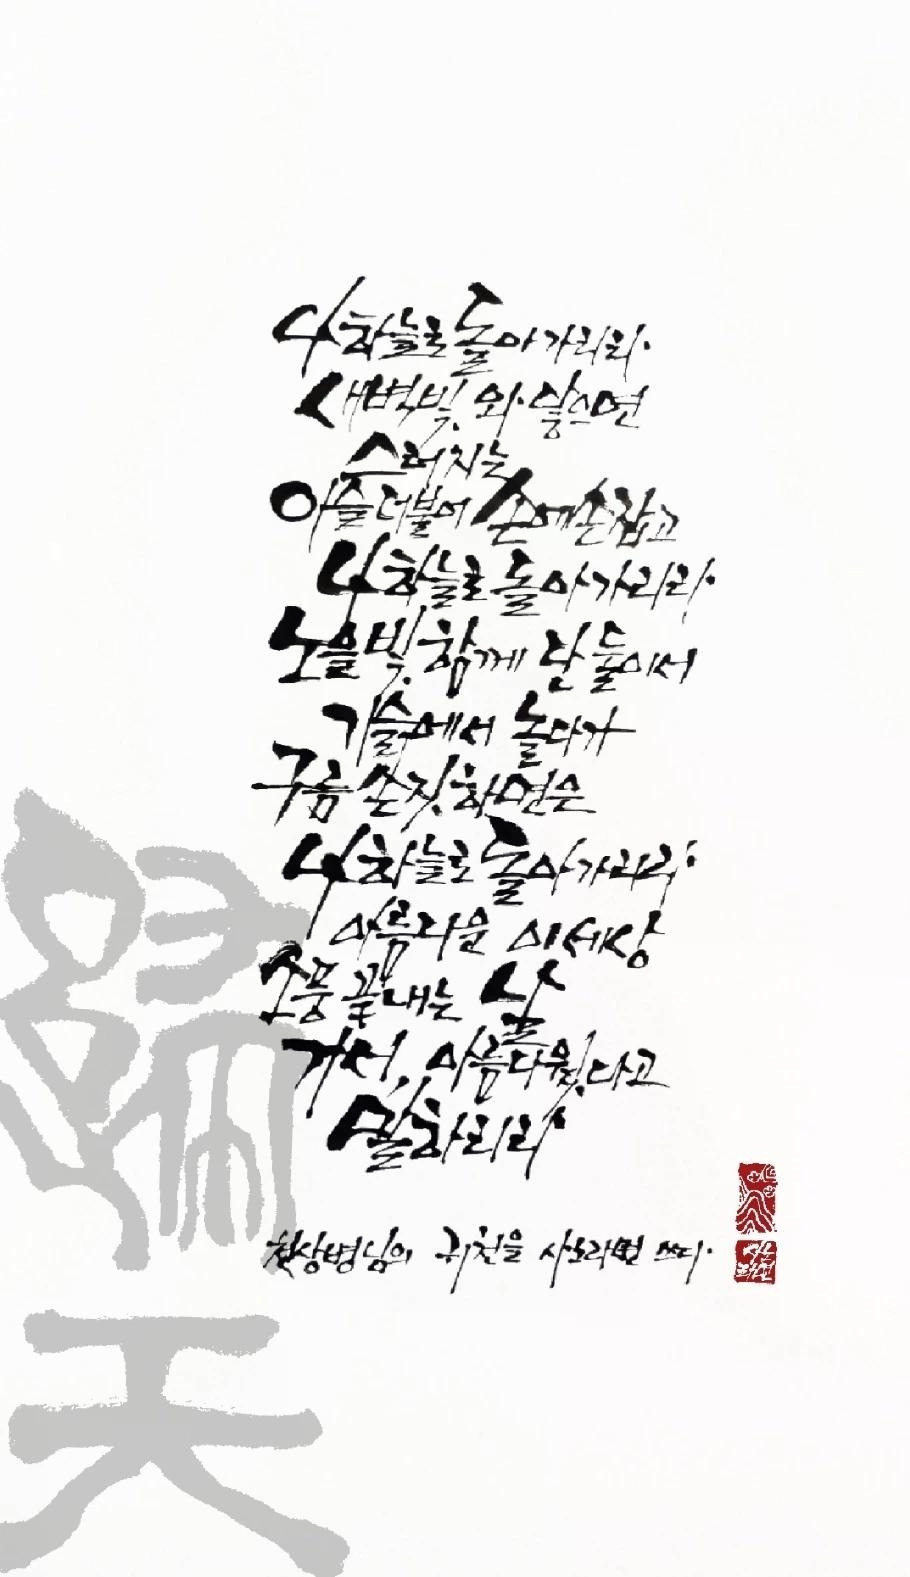 나 하늘로 돌아가리라.
새벽빛 와 닿으면
스러지는
이슬 더불어 손에 손잡고
나 하늘로 돌아가리라.
노을빛 함께 단 둘이서
기슭에서 놀다가
구름 손짓하면은
나 하늘로 돌아가리라.
아름다운 이 세상
소풍 끝내는 날
가서, 아름다웠다고
말하리라
천상병님의 귀천을 사노라면 쓰다.
歸
天